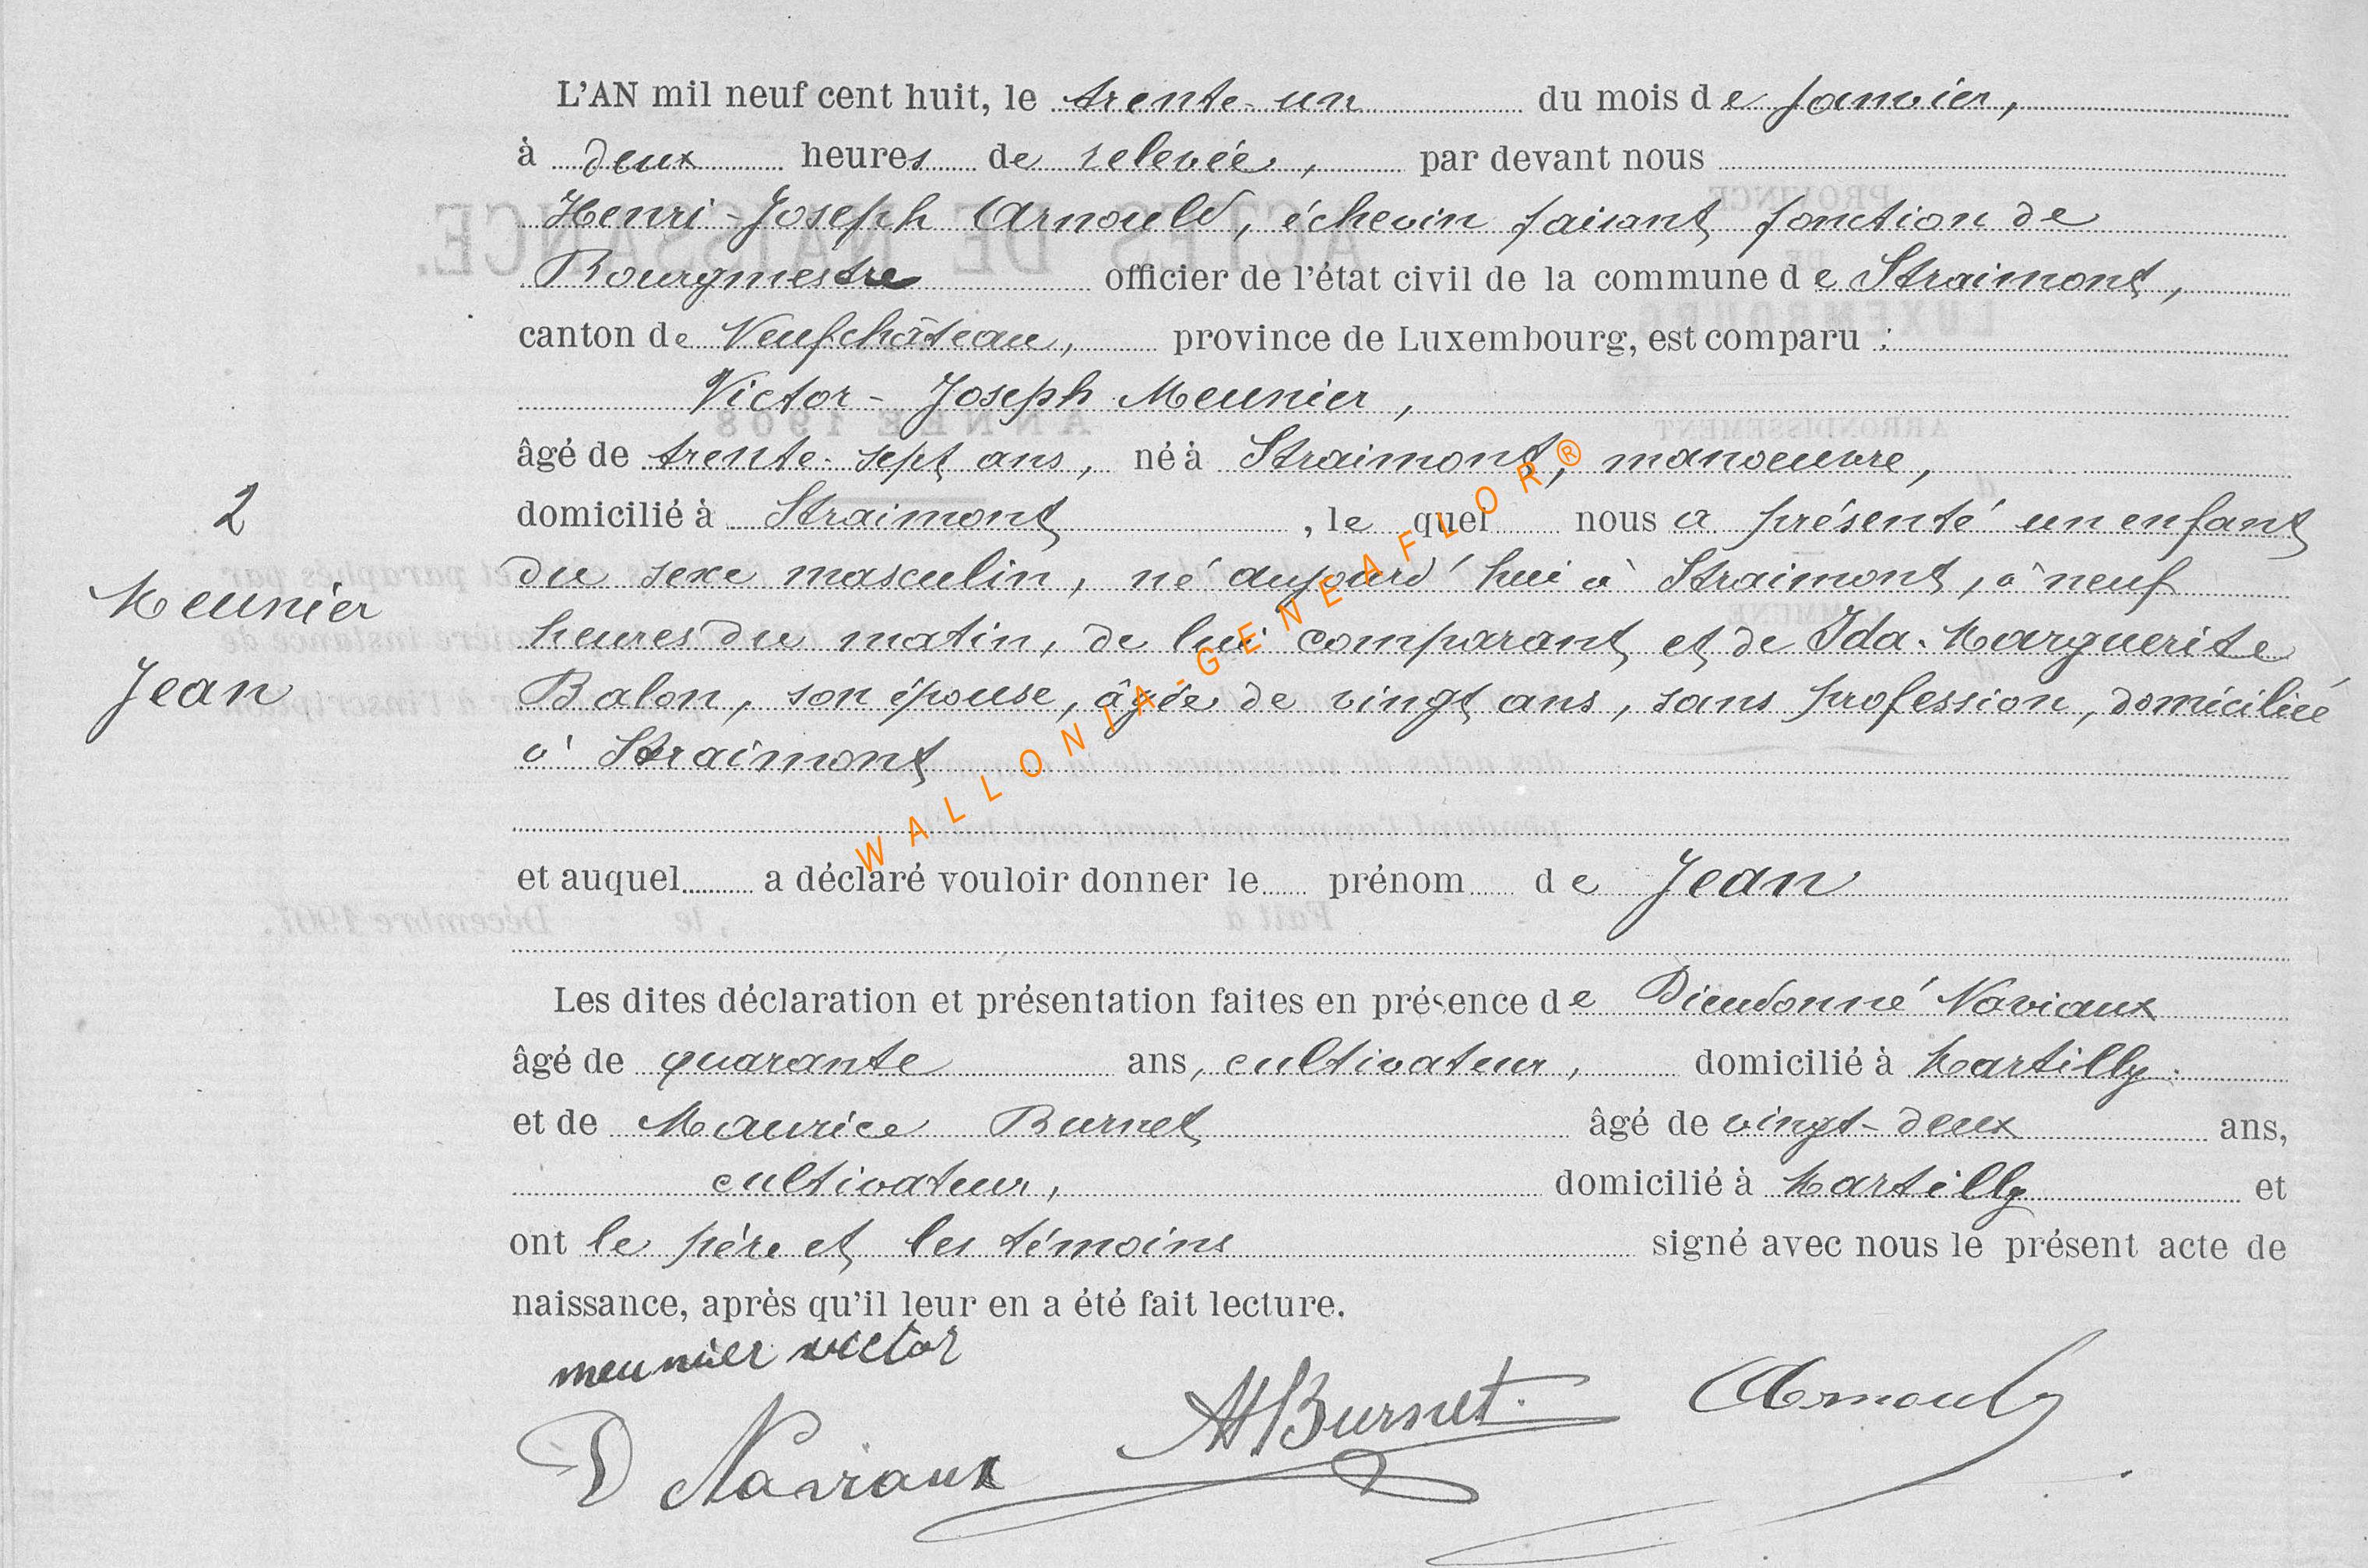 L'AN mil neuf cent huit, le trente-un du mois de Janvier,
à deux heures de relevée, par devant nous
Henri-Joseph Arnould, échevin faisant fonction de
Bourgmestre officier de l'état civil de la commune de Straimont,
canton de Neufchâteau, province de Luxembourg, est comparu :
Victor-Joseph Meunier,
âgé de trente-sept ans, né à Straimont, manoeuvre,
domicilié à Straimont, le quel nous a présenté un enfant
du sexe masculin, né aujourd'hui à Straimont, à neuf
heures du matin, de lui comparant et de Ida-Marguerite
Balon, son épouse, âgée de vingt ans, sans profession, domiciliée
à Straimont
2
Meunier
Jean
et auquel a déclaré vouloir donner le prénom de Jean
Les dites déclaration et présentation faites en présence de Dieudonné Naviaux
âgé de quarante ans, cultivateur, domicilié à Martilly
et de Maurice Burnet âgé de vingt-deux ans,
cultivateur, domicilié à Martilly et
ont le père et les témoins signé avec nous le présent acte de
naissance, après qu'il leur en a été fait lecture.
meunier victor
D Naviaux
MBurnet.
Arnould
WALLONIA-GENEAFLOR®
ACTES DE NAISSANCE.
PROVINCE
DE
LUXEMBOURG
ANNÉE 1908
ARRONDISSEMENT
COMMUNE
Fait à , le Décembre 1907.